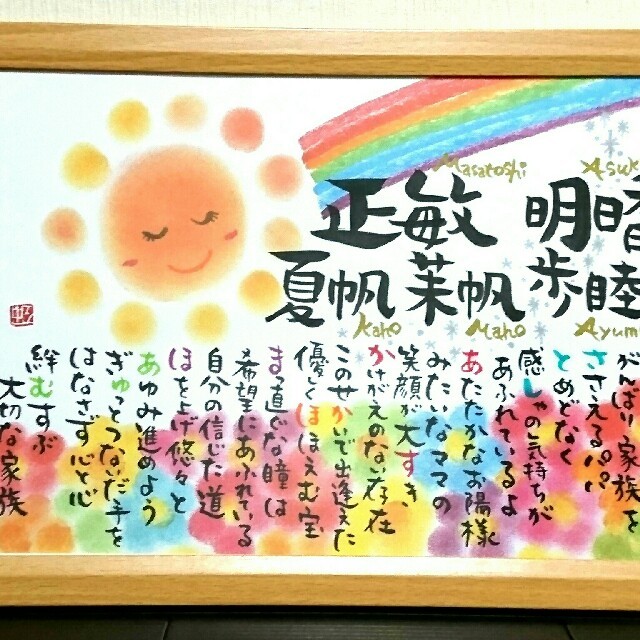 Masatoshi Asuk
正敏 明日香
夏帆 茉帆 歩睦
Kaho Maho Ayum
がんばり家族を
ささえるパパ
とめどなく
感しゃの気持ちが
あふれているよ
あたたかなお陽様
みたいなママの
笑顔が大すき、
かけがえのない存在
このせかいで出逢えた
優しくほほえむ宝
まっ直ぐな瞳は
希望にあふれている
自分の信じた道
ほを上げ悠々と
あゆみ進めよう
ぎゅっとつないだ手を
はなさず心と心
絆むすぶ
大切な家族